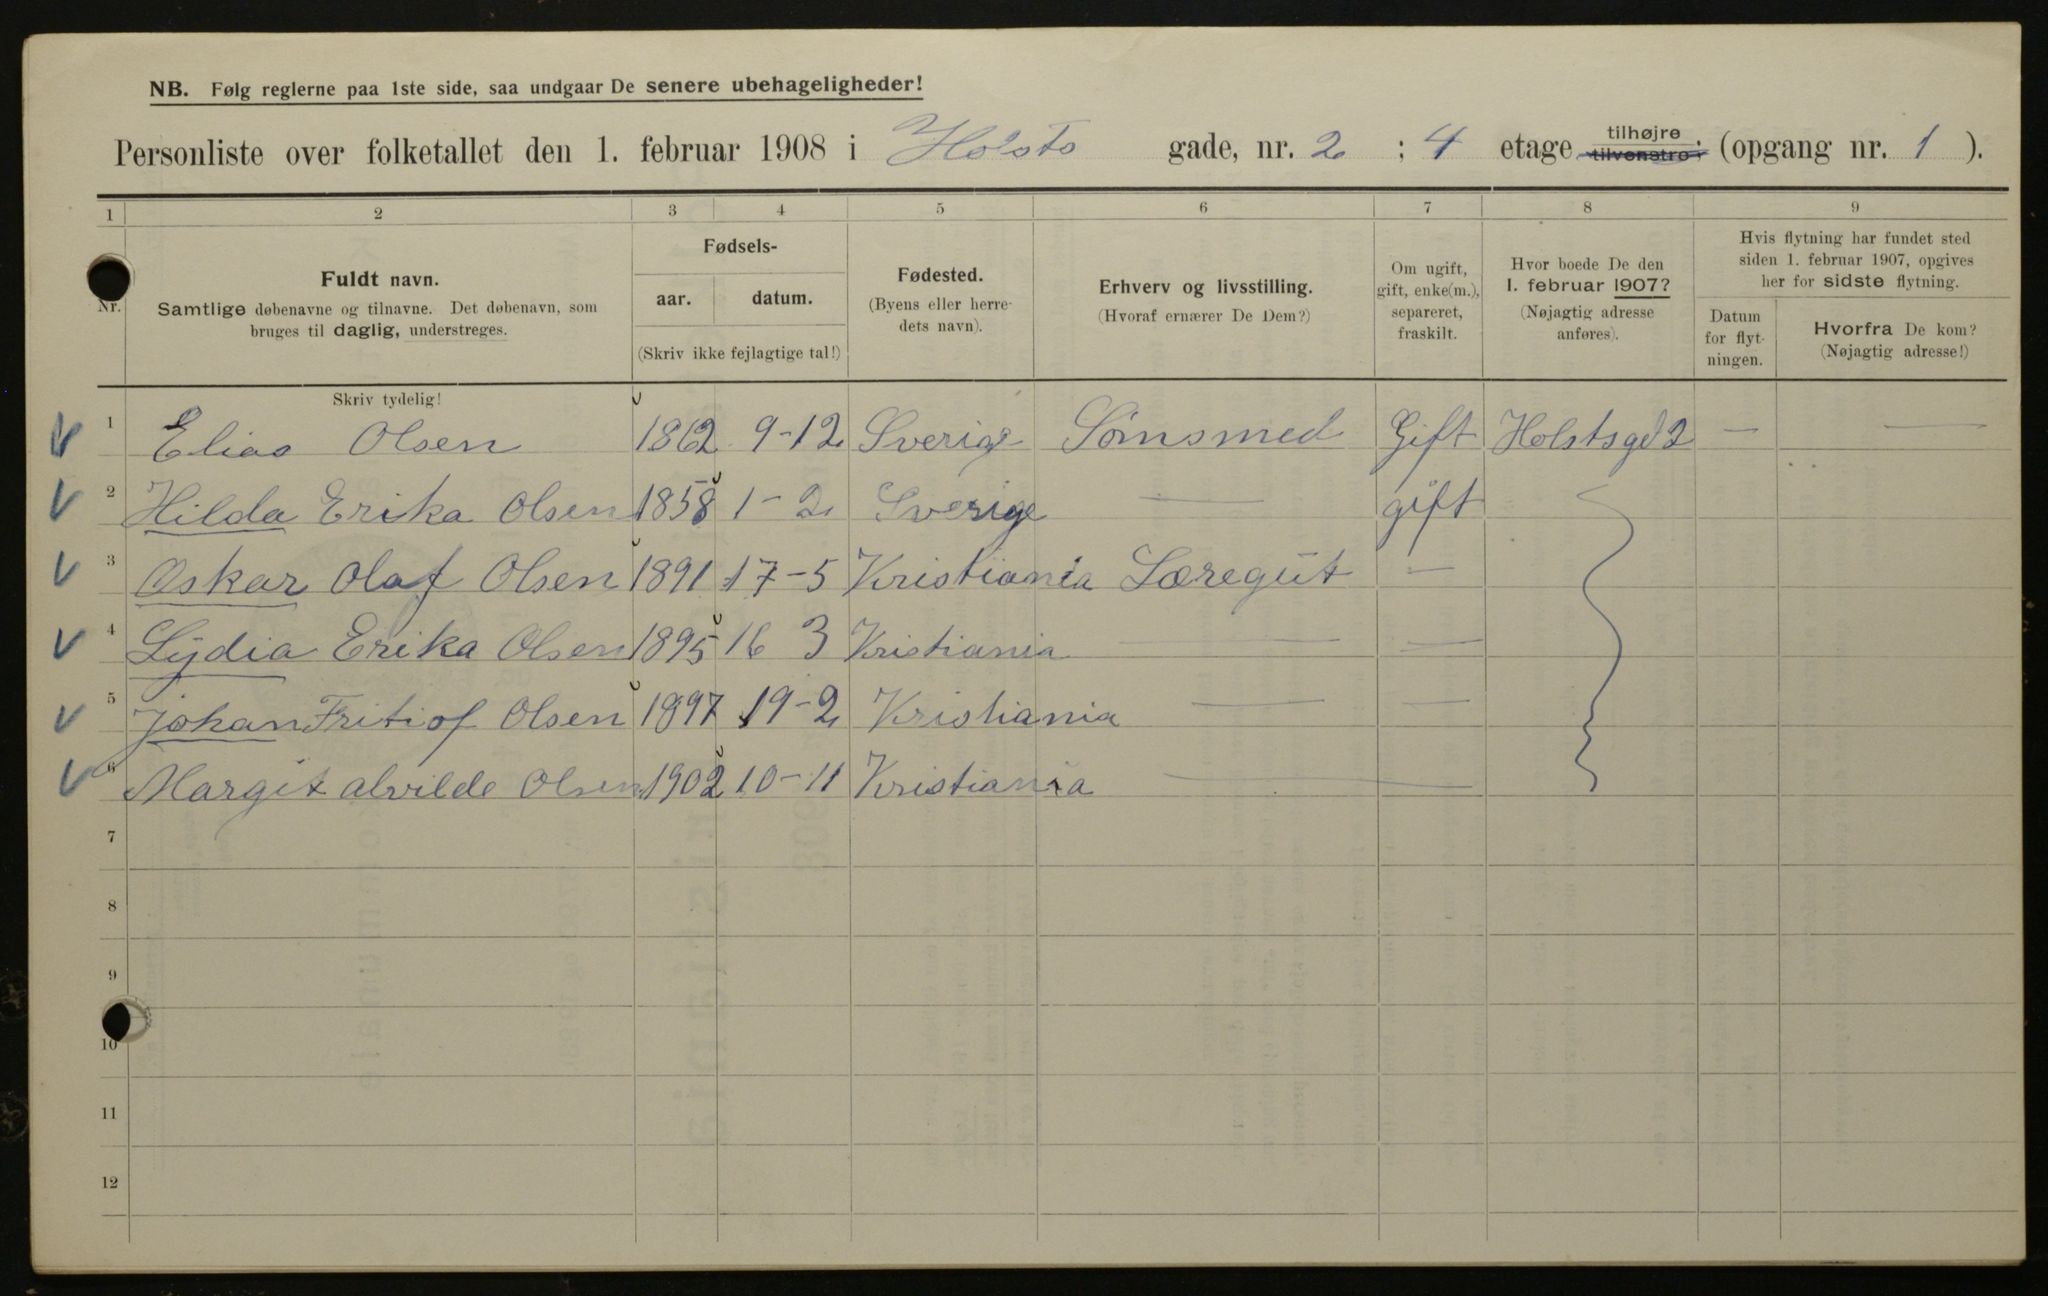 NB. Følg reglerne paa 1ste side, saa undgaar De senere ubehageligheder!
Personliste over folketallet den 1. februar 1908 i Holsts gade, nr. 2 ; 4 etage tilhøjre tilvenstre; (opgang nr. 1 ).
1 2 3 4 5 6 7 8 9
Nr.
Fuldt navn.
Samtlige døbenavne og tilnavne. Det døbenavn, som
bruges til daglig, understreges.
Fødsels-
aar. datum.
(Skriv ikke fejlagtige tal!)
Fødested.
(Byens eller herre-
dets navn).
Erhverv og livsstilling.
(Hvoraf ernærer De Dem?)
Om ugift,
gift, enke(m.),
separeret,
fraskilt.
Hvor boede De den
1. februar 1907?
(Nøjagtig adresse
anføres).
Hvis flytning har fundet sted
siden 1. februar 1907, opgives
her for sidste flytning.
Datum
for flyt-
ningen.
Hvorfra De kom?
(Nøjagtig adresse!)
Skriv tydelig!
1 Elias Olsen 1862 9-12 Sverige Sømsmed Gift Holstsgd 2 — —
2 Hilda Erika Olsen 1858 1-2 Sverige — gift
3 Oskar Olaf Olsen 1891 17-5 Kristiania Læregut —
4 Lydia Erika Olsen 1895 16 3 Kristiania — —
5 Johan Fritiof Olsen 1897 19-2 Kristiania — —
6 Margit alvilde Olsen 1902 10-11 Kristiania —
7
8
9
10
11
12